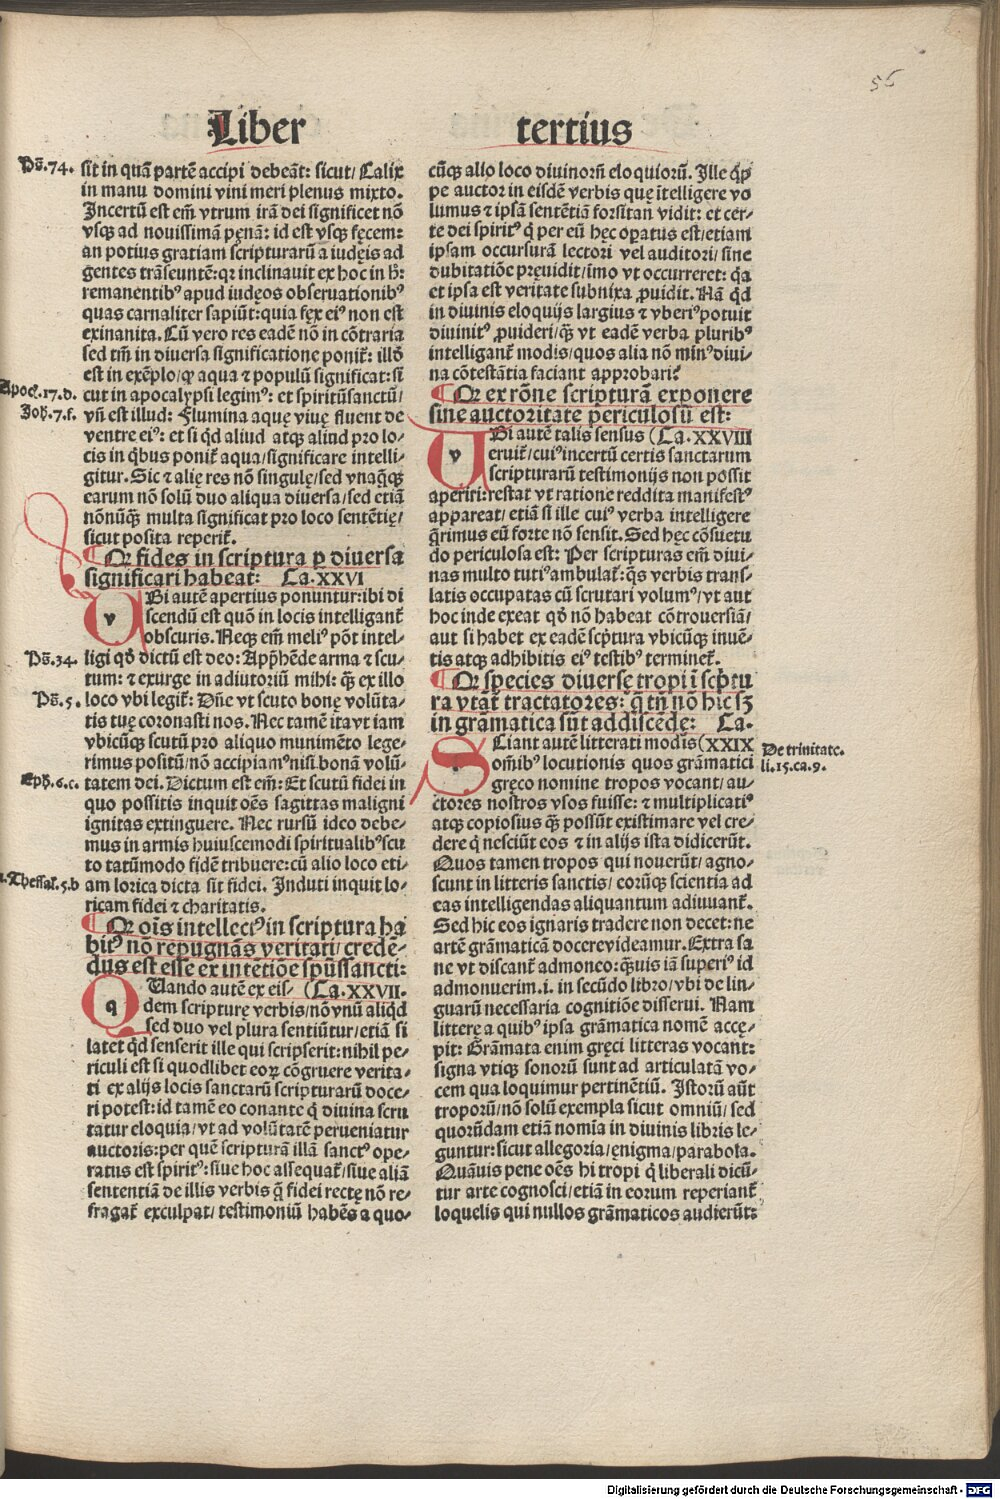 56
Liber tertius
Ps̄.74. sit in quā partē accipi debeāt: sicut/ Calix
in manu domini vini meri plenus mixto.
Incertū est em̄ vtrum irā dei significet nō
vsqꝫ ad nouissimā pęnā: id est vsqꝫ fęcem:
an potius gratiam scripturarū a iudęis ad
gentes trāseuntē: qꝛ inclinauit ex hoc in h̄:
remanentibꝰ apud iudęos obseruationibꝰ
quas carnaliter sapiūt: quia fęx eiꝰ non est
exinanita. Cū vero res eadē nō in cōtraria
sed tm̄ in diuersa significatione poniť: illď
est in exēplo/ ꝙ aqua ⁊ populū significat: si
Apoc̄.17.d. cut in apocalypsi legimꝰ: et spiritūsanctū/
Joh̄.7.f. vn̄ est illud: Flumina aquę viuę fluent de
ventre eiꝰ: et si qd̄ aliud atqꝫ aliud pro lo⸗
cis in qbꝰ poniť aqua/ significare intelli⸗
gitur. Sic ⁊ alię res nō singulę/ sed vnaq̄qꝫ
earum nō solū duo aliqua diuersa/ sed etiā
nōnūqꝫ multa significat pro loco sentētię/
sicut posita reperiť.
¶ Qꝛ fides in scriptura ꝑ diuersa
significari habeat: Ca.XXVI
v UBi autē apertius ponuntur: ibi di
scendū est quō in locis intelliganť
obscuris. Neqꝫ em̄ meliꝰ pōt intel⸗
Ps̄.34. ligi qď dictū est deo: App̄hēde arma ⁊ scu⸗
tum: ⁊ exurge in adiutoriū mihi: q̄ꝫ ex illo
Ps̄.5. loco vbi legiť: Dn̄e vt scuto bonę volūta⸗
tis tuę coronasti nos. Nec tamē ita vt iam
vbicūqꝫ scutū pro aliquo munimēto lege⸗
rimus positū/ nō accipiamꝰ nisi bonā volū⸗
Eph̄.6.c. tatem dei. Dictum est em̄: Et scutū fidei in
quo possitis inquit oēs sagittas maligni
ignitas extinguere. Nec rursū ideo debe⸗
mus in armis huiuscemodi spiritualibꝰ scu
to tātūmodo fidē tribuere: cū alio loco eti⸗
1.Thessal̄.5.b am lorica dicta sit fidei. Induti inquit lo⸗
ricam fidei ⁊ charitatis.
¶ Qꝛ oīs intellectꝰ in scriptura ha
bitꝰ nō repugnās veritati/ credē⸗
dus est esse ex intētiōe spūssancti:
q QUando autē ex eis⸗ (Ca.XXVII.
dem scripturę verbis/ nō vnū aliqd̄
sed duo vel plura sentiūtur/ etiā si
latet qd̄ senserit ille qui scripserit: nihil pe⸗
riculi est si quodlibet eoꝝ cōgruere verita⸗
ti ex alijs locis sanctarū scripturarū doce⸗
ri potest: id tamē eo conante q̄ diuina scru
tatur eloquia/ vt ad volūtatē perueniatur
auctoris: per quē scripturā illā sanctꝰ ope⸗
ratus est spiritꝰ: siue hoc assequať/ siue aliā
sententiā de illis verbis q̄ fidei rectę nō re⸗
fragať exculpat/ testimoniū habēs a quo⸗
cūqꝫ alio loco diuinorū eloquiorū. Ille q̄p̄
pe auctor in eisdē verbis quę ītelligere vo
lumus ⁊ ipsā sentētiā forsitan vidit: et cer⸗
te dei spiritꝰ q̄ per eū hęc opatus est/ etiam
ipsam occursurā lectori vel auditori/ sine
dubitatiōe pręuidit/ imo vt occurreret: q̄a
et ipsa est veritate subnixa ꝓuidit. Nā qd̄
in diuinis eloquijs largius ⁊ vberiꝰ potuit
diuinitꝰ ꝓuideri/ q̄ꝫ vt eadē verba pluribꝰ
intelliganť modis/ quos alia nō minꝰ diui⸗
na cōtestātia faciant approbari?
¶ Qꝛ ex rōne scripturā exponere
sine auctoritate periculosū est:
v UBi autē talis sensus (Ca.XXVIII
eruiť/ cuiꝰ incertū certis sanctarum
scripturarū testimonijs non possit
aperiri: restat vt ratione reddita manifestꝰ
appareat/ etiā si ille cuiꝰ verba intelligere
q̄rimus eū forte nō sensit. Sed hęc cōsuetu
do periculosa est: Per scripturas em̄ diui⸗
nas multo tutiꝰ ambulať: q̄s verbis trans⸗
latis occupatas cū scrutari volumꝰ/ vt aut
hoc inde exeat qď nō habeat cōtrouersiā/
aut si habet ex eadē scp̄tura vbicūqꝫ inuē⸗
tis atqꝫ adhibitis eiꝰ testibꝰ termineť.
¶ Qꝛ species diuerse tropi ī scp̄tu
ra vtāť tractatores: q̄ tn̄ nō hic sꝫ
in grāmatica sūt addiscēde: Ca.
s SCiant autē litterati modis (XXIX De trinitate.
om̄ibꝰ locutionis quos grāmatici li.15.ca.9.
gręco nomine tropos vocant/ au⸗
ctores nostros vsos fuisse: ⁊ multiplicatiꝰ
atqꝫ copiosius q̄ꝫ possūt existimare vel cre⸗
dere q̄ nesciūt eos ⁊ in alijs ista didicerūt.
Quos tamen tropos qui nouerūt/ agno⸗
scunt in litteris sanctis/ eorūqꝫ scientia ad
eas intelligendas aliquantum adiuuanť.
Sed hic eos ignaris tradere non decet: ne
artē grāmaticā docere videamur. Extra sa
ne vt discanť admoneo: q̄uis iā superiꝰ id
admonuerim .i. in secūdo libro/ vbi de lin⸗
guarū necessaria cognitiōe disserui. Nam
litterę a quibꝰ ipsa grāmatica nomē accę⸗
pit: Grāmata enim gręci litteras vocant:
signa vtiqꝫ sonorū sunt ad articulatā vo⸗
cem qua loquimur pertinētiū. Istorū aūt
troporū/ nō solū exempla sicut omniū/ sed
quorūdam etiā nomia in diuinis libris le⸗
guntur: sicut allegoria/ ęnigma/ parabola.
Quāuis pene oēs hi tropi q̄ liberali dicū⸗
tur arte cognosci/ etiā in eorum reperianť
loquelis qui nullos grāmaticos audierūt:
Digitalisierung gefördert durch die Deutsche Forschungsgemeinschaft - DFG